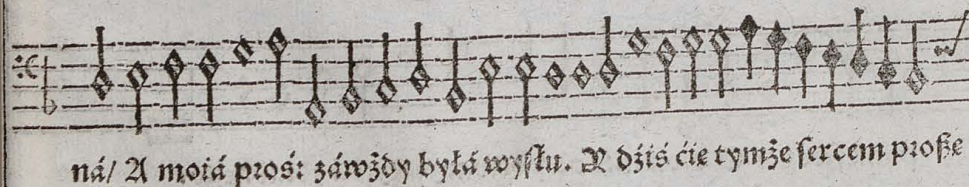 ná/ A moiá prośː záwżdy byłá wysłu. Y dźiś ćie tymże sercem proße